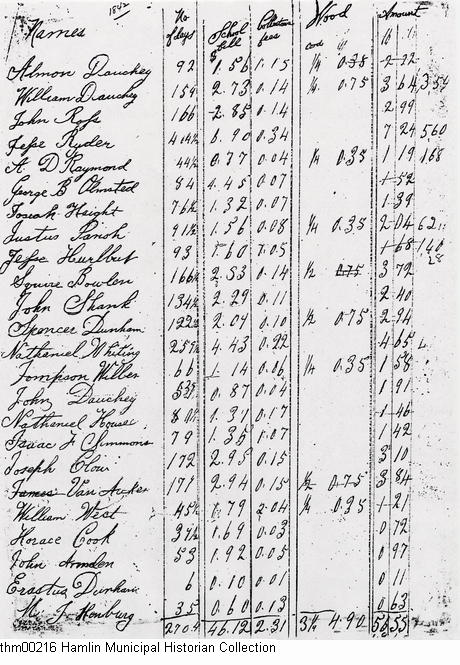 Names 1842 No of days School Bill Collectors fees Wood Amount
cord
Almon Dauchey 92 1.56 0.15 1/4 0.38 2 22
William Dauchey 159 2.73 0.14 1/2 0.75 3 64
John Ross 166 2.85 0.14 2 99
Jesse Ryder 404½ 6.90 0.34 7 24 560
A. D Raymond 44½ 0.77 0.04 1/4 0.35 1 19 168
George B Olmsted 84 1.45 0.07 1 52
Josiah Height 76½ 1.32 0.07 1 39
Justus 91½ 1.56 0.08 1/4 0.35 2 04
Jesse Hurlbut 93 1.60 1 68 140
28
Squire Bowlen 166½ 2.53 0.14 1/2 0.75 3 72
John Shank 134½ 2.29 0.11 2 40
Spencer Dunham 2.04 0.10 1/2 0.75 2 94
Nathaniel Whiting 259½ 4.43 0.22 4 65
Tompson Wilber 66 1.14 0.06 1/4 0.35 1 58
John Dauchey 0.87 0.04 1 91
Nathaniel House 1.31 0.17 1 46
Isaac F Cimmons 79 1.35 1.07 1 42
Joseph Clow 172 2.95 0.15 3 10
James Van Auker 171 2.94 0.15 1/2 0.75 3 84
William West 45½ 1.79 2.04 1/4 0.35 1 21
Horace Cook 39½ 1.69 0.03 0 72
John 53 1.92 0.05 0 97
Erastus Dunham 6 0.10 0.01 0 11
M. J. Henburg 35 0.60 0.13 0 63
46.12 2.31 3¼ 4.90 55
thm00216 Hamlin Municipal Historian Collection